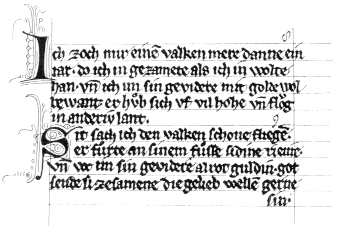 Ich zoch mir einē valken mere danne ein
iar. do ich in gezamete als ich in wolte
han. vn̄ ich im sin gevidere mit golde wol
bewant. er hůb sich vf vil hohe vn̄ flǒg
in anderiv lant.
Sit sach ich den valken schone fliegē.
er fůrte an sinem fůsse sidine rieme.
vn̄ was im sin gevidere alrot guldin. got
sende si zesamene die gelieb wellē gerne
sin.